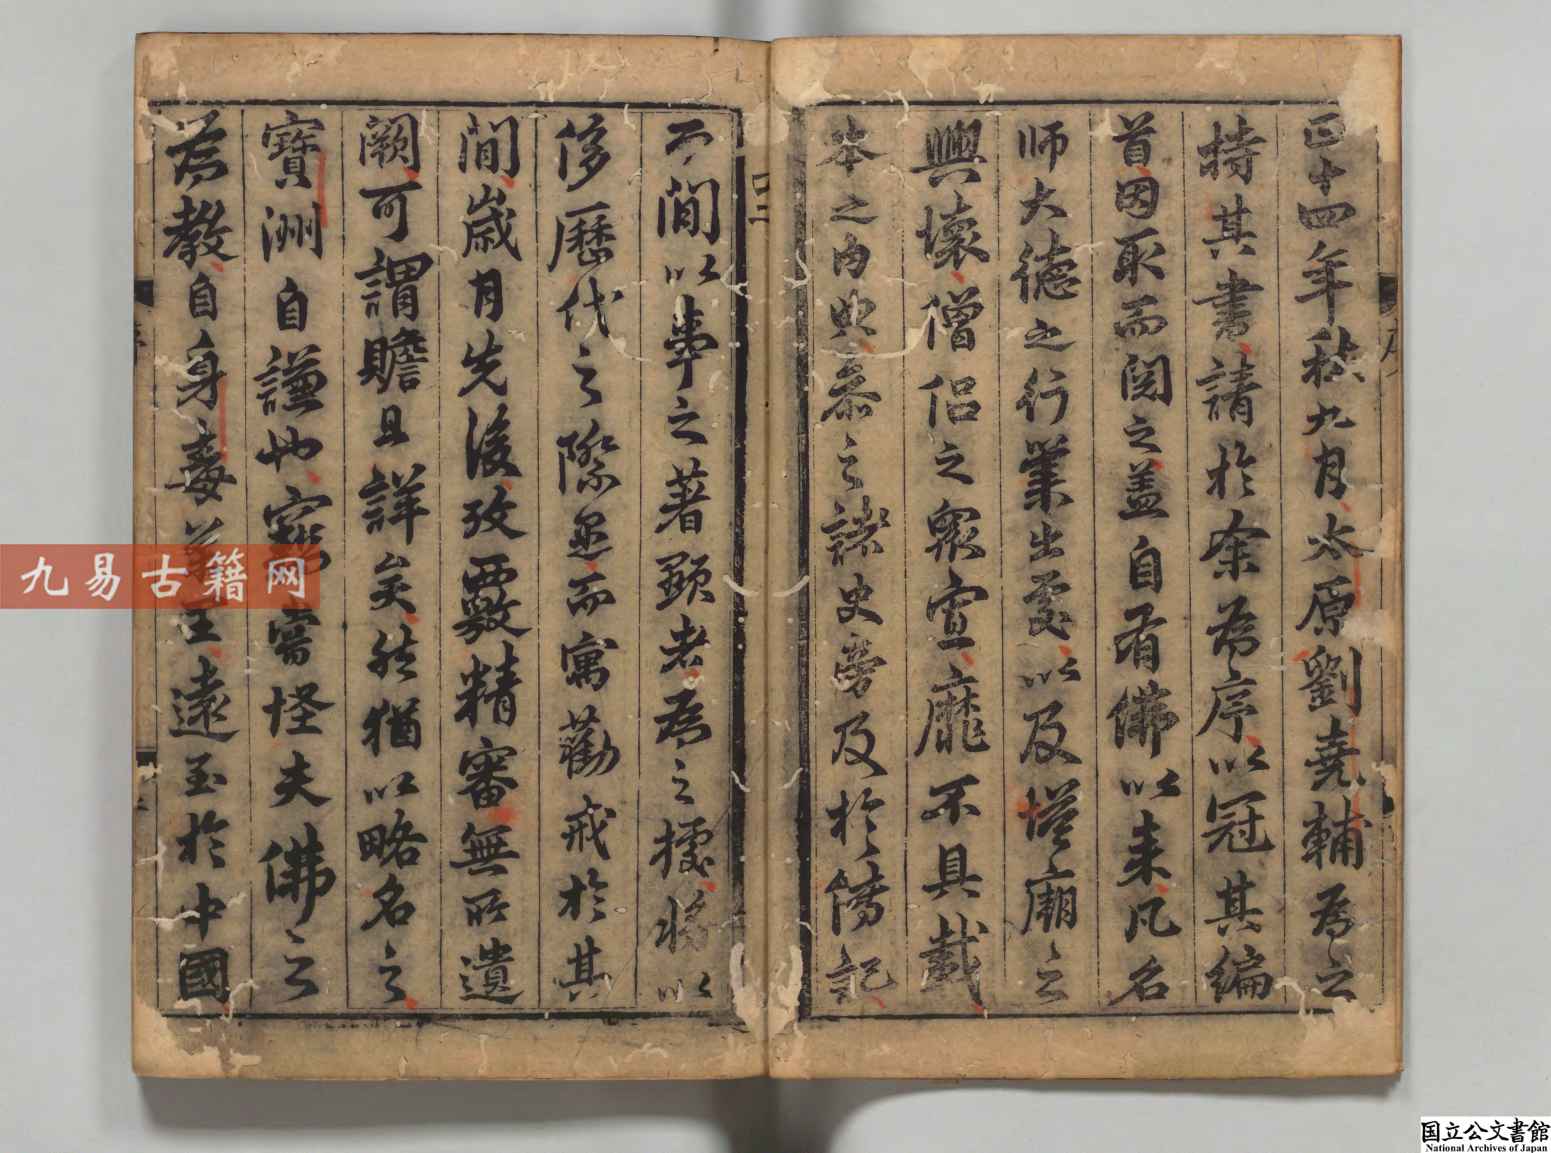 正十四年秋九月太原劉堯輔為之
持其書請於余為序以冠其編
首因取而閱之盖自有佛以来凡名
師大德之行業出處以及塔廟之
興壞僧侣之衆寡靡不具載
本之内典叅之諸史旁及於傳記
而間以事之著顯者為之據將以
侈歷代之際遇而寓勸戒於其
間歲月先後攷覈精審無所遺
闕可謂瞻且詳矣然猶以略名之
寶洲自謙也寳洲嘗怪夫佛之
為教自身毒萬里遠至於中國
九易古籍网
国立公文書館
National Archives of Japan